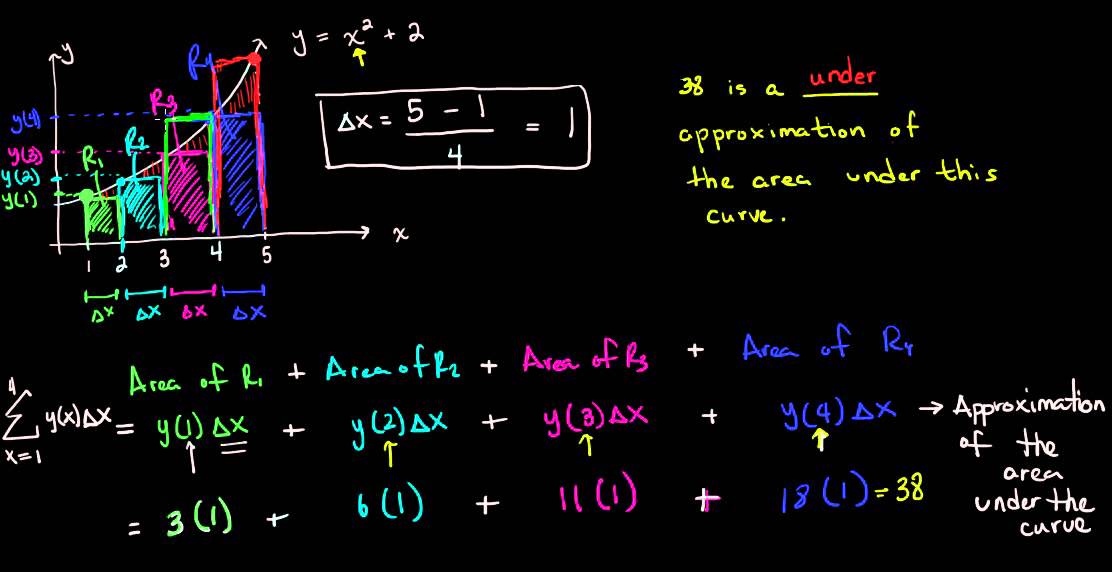 y
y = x² + 2
R₄
R₃
R₂
R₁
y(4)
y(3)
y(2)
y(1)
x
1 2 3 4 5
Δx Δx Δx Δx
Δx = (5 - 1)/4 = 1
38 is a under
approximation of
the area under this
curve.
Area of R₁ + Area of R₂ + Area of R₃ + Area of R₄
4
∑ y(x)Δx = y(1)Δx + y(2)Δx + y(3)Δx + y(4)Δx → Approximation
x=1
of the
area
under the
curve
= 3(1) + 6(1) + 11(1) + 18(1) = 38